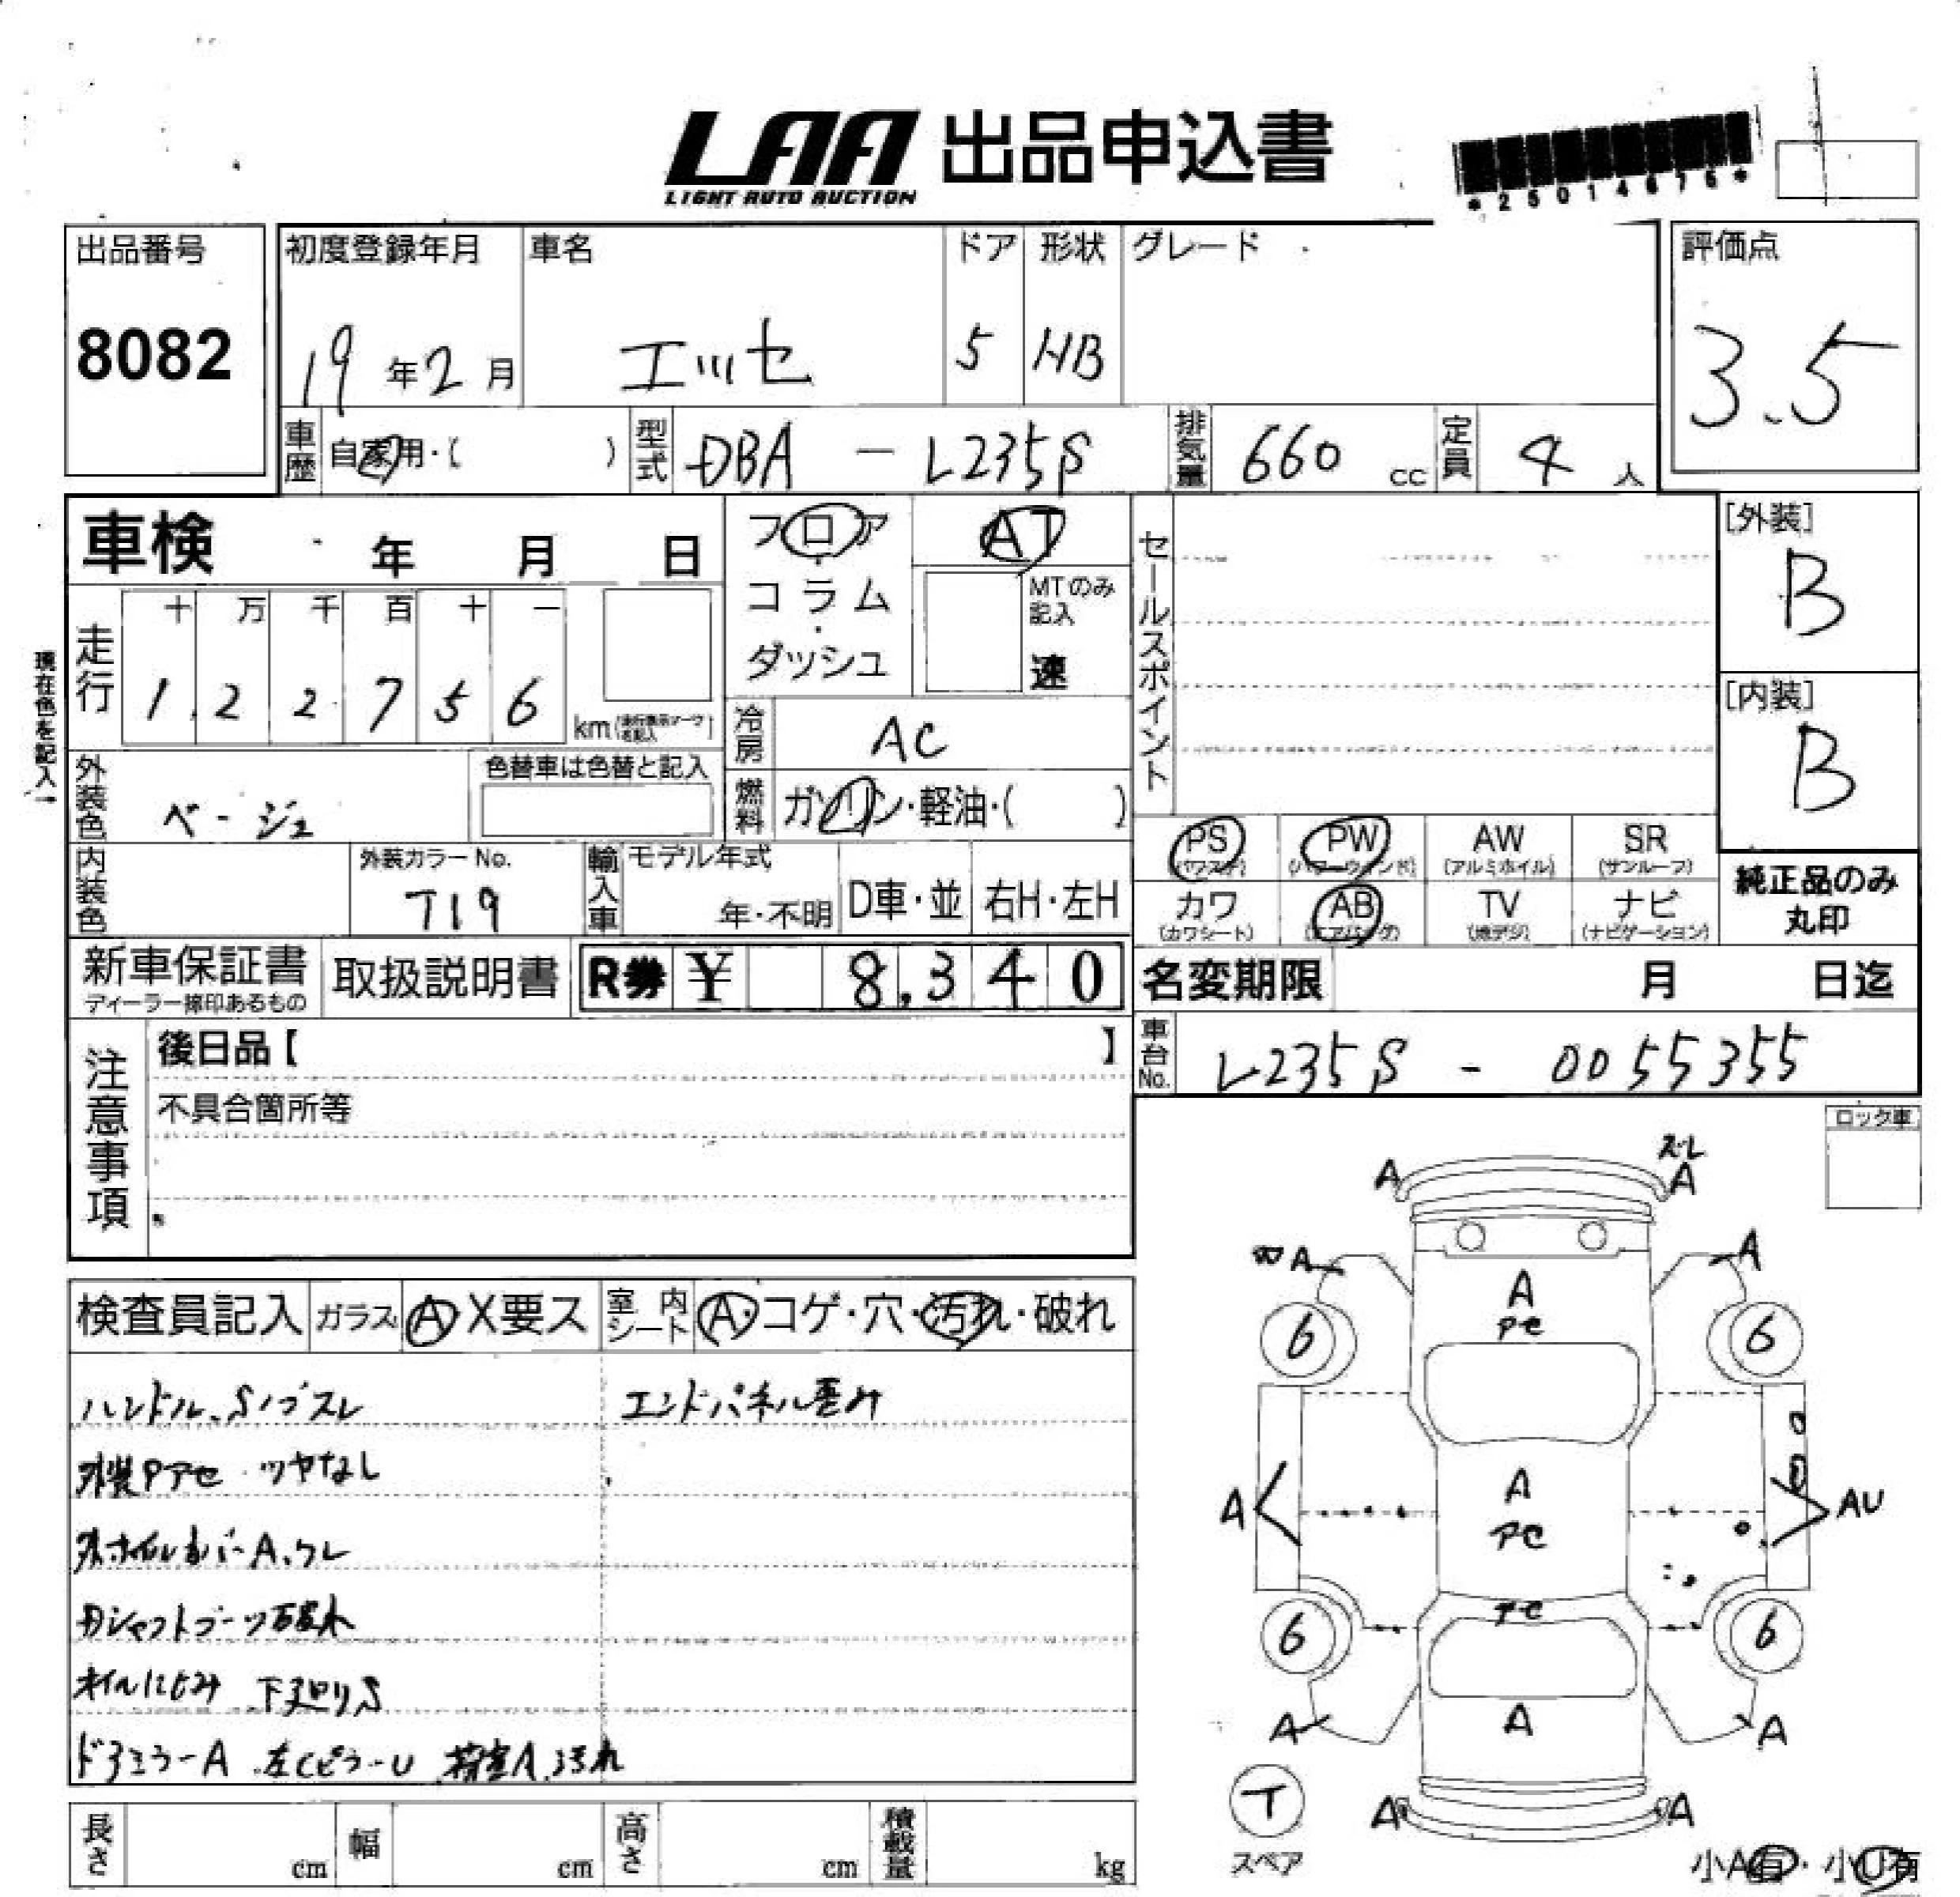 LAA 出品申込書
LIGHT AUTO AUCTION
*25014675*
出品番号 初度登録年月 車名 ドア 形状 グレード 評価点
8082 19年2月 エッセ 5 HB 3.5
車歴 自家用・( ) 型式 DBA - L235S 排気量 660 cc 定員 4 人
車検 年 月 日 フロア AT セールスポイント [外装]
コラム MTのみ記入 B
ダッシュ 速
走行 十 万 千 百 十 一
1 2 2 7 5 6 km [内装]
現在色を記入→ 冷房 AC B
外装色 ベージュ 色替車は色替と記入 燃料 ガソリン・軽油・( )
PS PW AW SR
(パワステ) (パワーウィンド) (アルミホイル) (サンルーフ)
内装色 外装カラーNo. T19 輸入車 モデル年式 年・不明 D車・並 右H・左H
カワ AB TV ナビ 純正品のみ丸印
(カワシート) (エアバッグ) (地デジ) (ナビゲーション)
新車保証書 取扱説明書 R券 ¥ 8,340 名変期限 月 日迄
ディーラー捺印あるもの
車台No. L235S - 0055355
注意事項 後日品【 】
不具合箇所等
ロック車
検査員記入 ガラス A・X要ス 室内シート A・コゲ・穴・汚れ・破れ
ハンドル、Sノブスレ エンドパネル歪み
外装Pアセ ツヤなし
ホイルカバーA、ワレ
Dシャフトブーツ破れ
オイルにじみ 下廻りS
ドアミラーA 左CピラーU 荷室A、汚れ
A ズレ A
A A
A
PC
6 6
A A AU
PC
PC
6 6
A A A
T
スペア
A A
小A有・小U有
長さ cm 幅 cm 高さ cm 積載量 kg